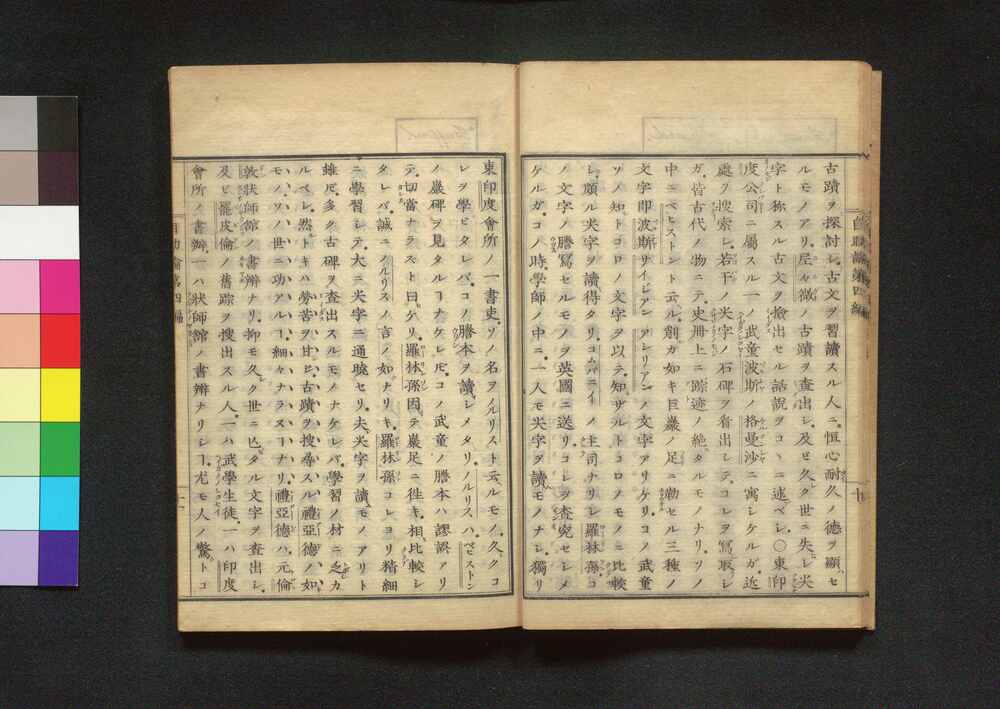 古蹟ヲ探討シ古文ヲ習讀スル人ニ。恒心耐久ノ德ヲ顯ハセ
ルモノアリ。尼ヤ微ノ古蹟ヲ査出シ。及ビ久ク世ニ失レシ尖
字ト称スル古文ヲ撿出セル話說ヲコヽニ述ベシ。〇東印
度公司ニ屬スル一ノ武童。波斯ノ格曼沙ニ寓シケルガ。近
處ヲ搜索シ。若干ノ尖字ノ石碑ヲ看出シテ。コレヲ寫取シ
ガ。皆古代ノ物ニテ。史册上ニ踪迹ノ絶タルモノナリ。ソノ
中ニベヒストント云ル。削ガ如キ巨巖ノ足ニ勒セル三種ノ
文字即波斯サイシアン アシリアンノ文字アリケリ。コノ武童
ソノ知トコロノ文字ヲ以テ。知ザルトコロノモノニ比較
シ。頗ル尖字ヲ讀得タリ。コムパニイノ主司ナリシ羅林孫コ
ノ文字ノ謄寫セルモノヲ英國ニ送リ。コレヲ査究セシメ
ケルガ。コノ時學師ノ中ニ。一人モ尖字ヲ讀モノナシ。獨リ
東印度會所ノ一書吏。ソノ名ヲノルリスト云ルモノ。久クコ
レヲ學ビタレバ。コノ謄本ヲ讀シメタリ。ノルリスハ。ベヒストン
ノ巖碑ヲ見タルヿナケレ𪜈。コノ武童ノ謄本ハ謬誤アリ
テ。切當ナラズト曰ケリ。羅林孫因テ巖足ニ往キ。相比較シ
タレバ。誠ニノルリスノ言ノ如ナリキ。羅林孫コレヨリ精細
ニ學習シテ。大ニ尖字ニ通曉セリ。夫尖字ヲ讀モノアリト
雖𪜈。多ク古碑ヲ査出スルモノナケレバ。學習ノ材ニ乏カ
ルベシ。然トキハ勞苦ヲ甘ジ。古蹟ヲ搜尋スル禮亞德ノ如
モノ。ソノ世ニ功アルヿ。細々ナラズヿナリ。禮亞德ハ。元倫
敦狀師館ノ書辨ナリ。抑モ久ク世ニ亡タル文字ヲ査出シ。
及ビ罷皮倫ノ舊踪ヲ搜出スル人。一ハ武學生徒。一ハ印度
會所ノ書辨。一ハ狀師舘ノ書辨ナリシヿ。尤モ人ノ驚トコ